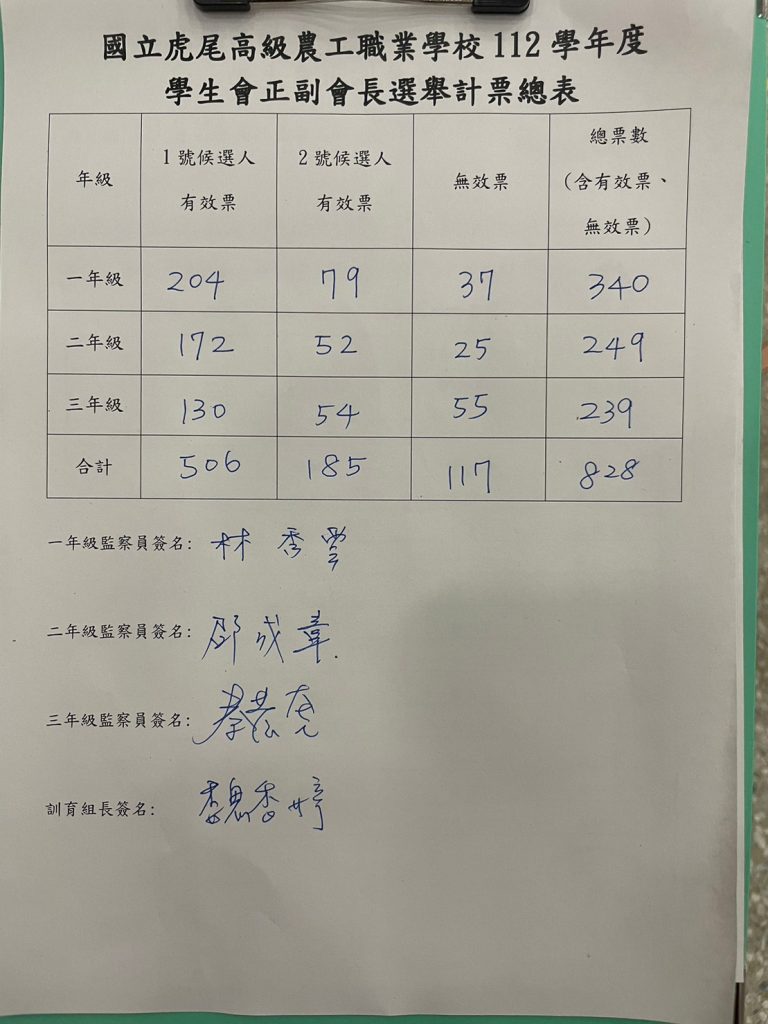 國立虎尾高級農工職業學校 112 學年度
學生會正副會長選舉計票總表
年級 1 號候選人有效票 2 號候選人有效票 無效票 總票數(含有效票、無效票)
一年級 204 79 37 340
二年級 172 52 25 249
三年級 130 54 55 239
合計 506 185 117 828
一年級監察員簽名: 林秀
二年級監察員簽名: 成章
三年級監察員簽名:
訓育組長簽名: 魏香婷